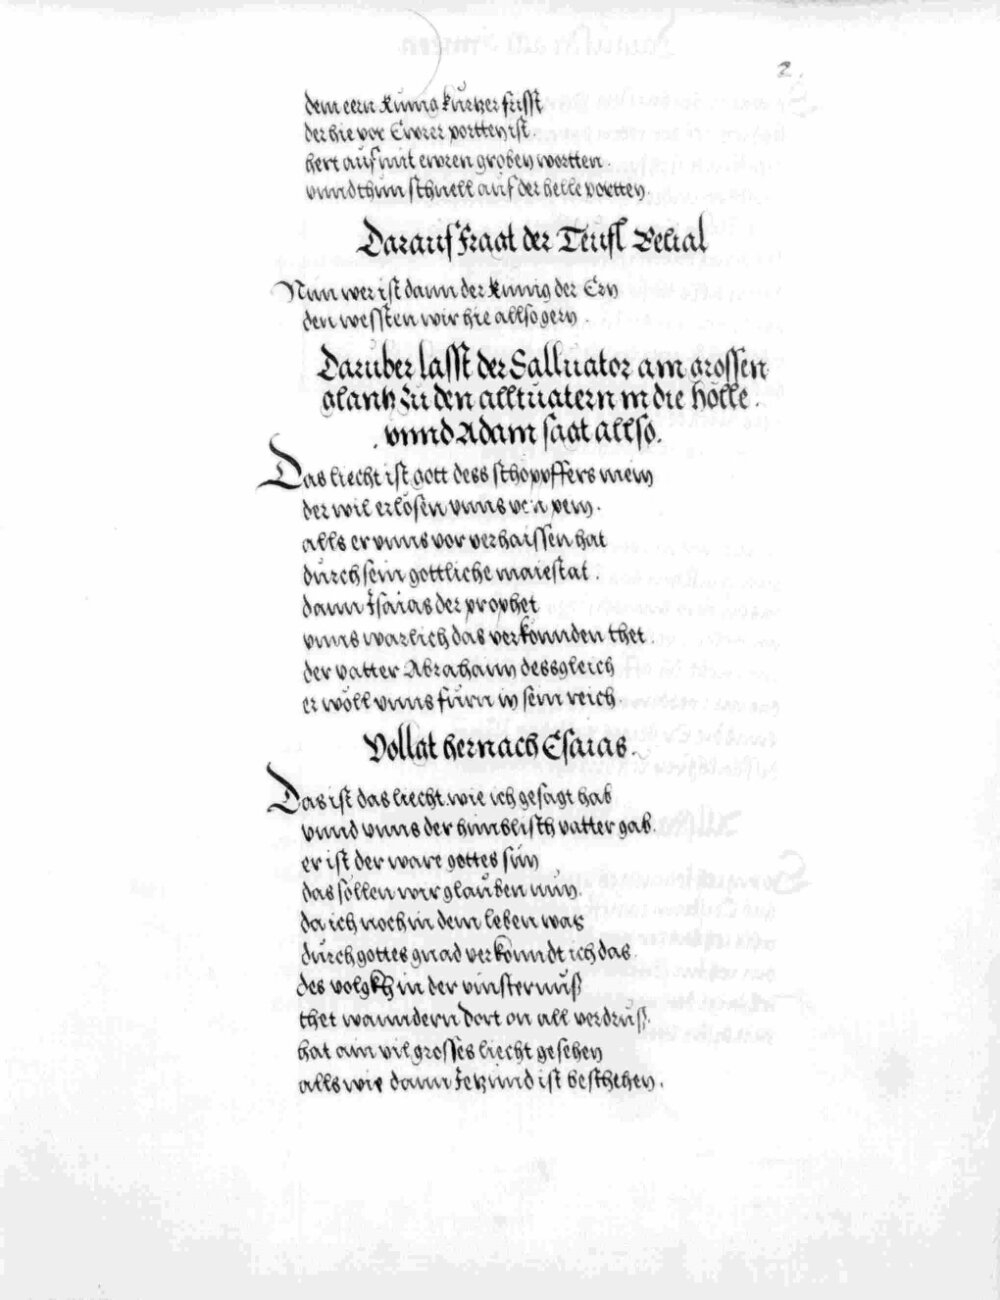 2.
dem eern kunig kurtzer frisst
der hie vor Ewrer portten ist.
hert auf mit ewren groben wortten.
vnnd thun schnell auf der helle portten.
Darauf fragt der Teufl Belial
Nun wer ist dann der kunig der Ern
den wessten wir hie allso gern.
Daruber lasst der Salluator am grossen
glantz zu den alltuatern in die hölle.
vnnd Adam sagt allso.
Das liecht ist gott dess schopffers mein
der wil erlösen vnns von pein.
alls er vnns vor verhaissen hat
durch sein gottliche maiestat.
dann Isaias der prophet
vnns warlich das verkonnden thet.
der vatter Abraham dessgleich
er wöll vnns fürn in sein reich
Vollgt hernach Esaias.
Das ist das liecht wie ich gesagt hab
vnnd vnns der himblisch vatter gab.
er ist der ware gottes sün
das söllen wir glauben nün.
da ich noch in dem leben was
durch gottes gnad verkonndt ich das.
des volgkh in der vinsternuß
thet wanndern dort on all verdruß.
hat ain vil grosses liecht gesehen
alls wie dann Jetzund ist beschehen.